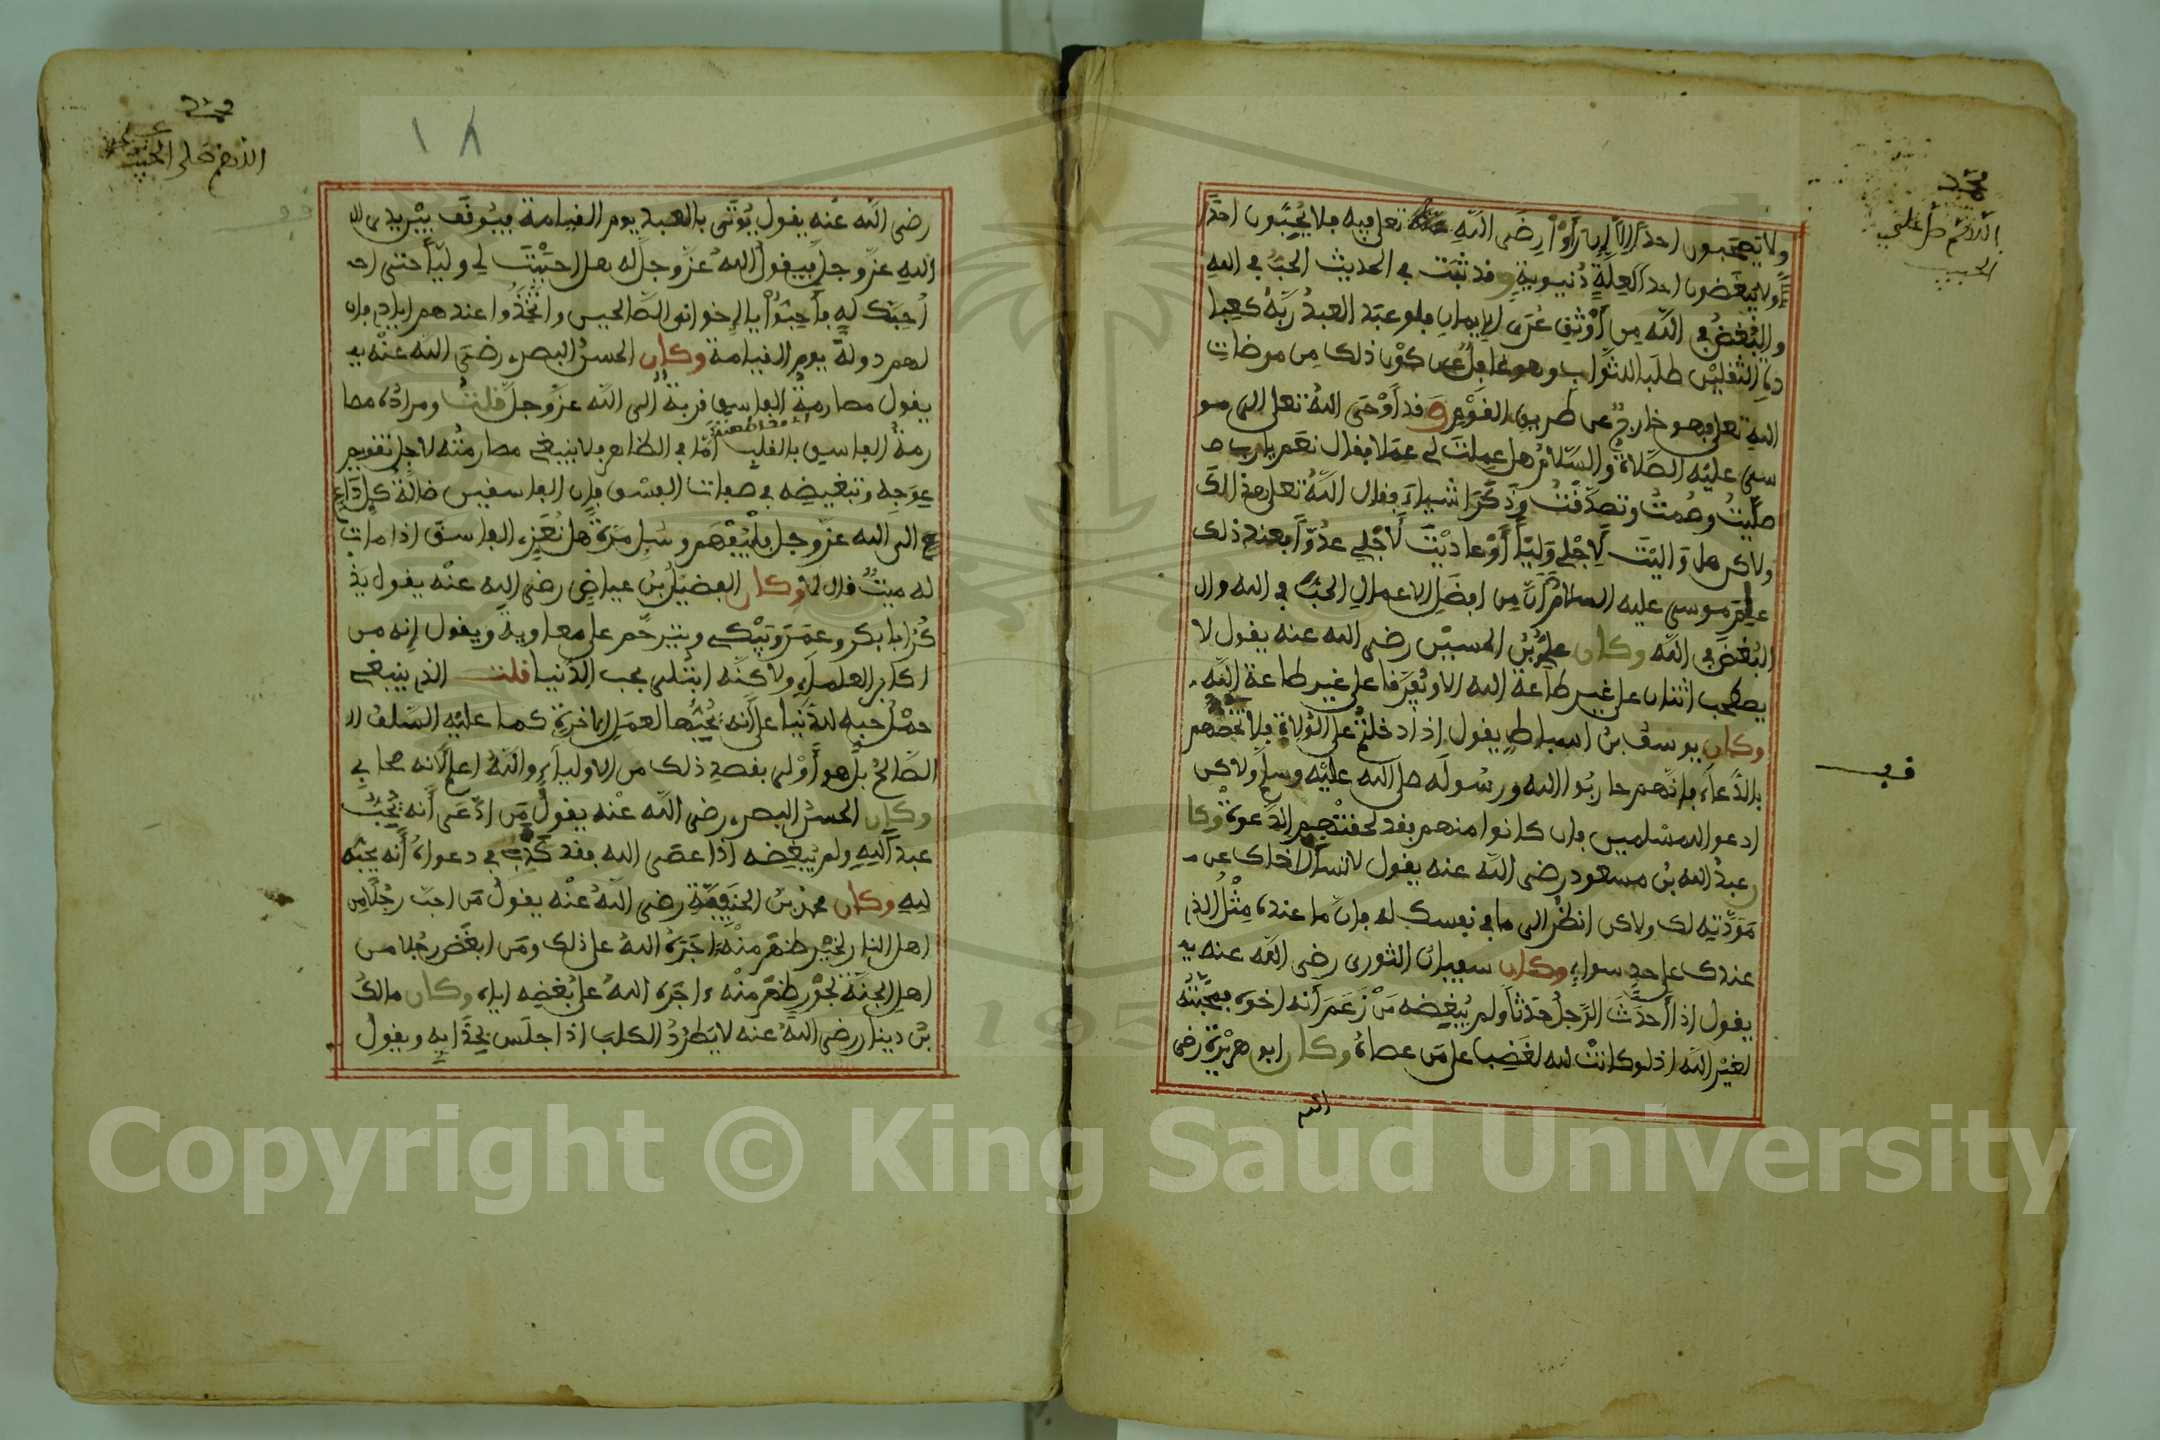 محمد
اللهم صل على الحبيب
ولا يصحبون احدا الا ان رأوا رضى الله تعلى فيه فلا يحبون احدا
ولا يبغضون احدا لعلة دنيوية وقد ثبت في الحديث الحب في الله
والبغض في الله من أوثق عرى الإيمان فلو عبد العبد ربه كعبا
دة الثقلين طلبا للثواب وهو غافل عن كون ذلك من مرضات
الله تعلى فهو خارج عن طريق القوم وقد أوحى الله تعلى الى مو
سى عليه الصلاة والسلام هل عملت لي عملا فقال نعم يا رب ص
صليت وصمت وتصدقت وذكر اشياء فقال الله تعلى هذا لك
ولاكن هل واليت لأجلي وليا أو عاديت لأجلي عدوا فعند ذلك
علم موسى عليه السلام أن من افضل الاعمال الحب في الله وال
البغض في الله وكان علي بن الحسين رضى الله عنه يقول لا
يصطحب اثنان على غير طاعة الله الا وتفرقا على غير طاعة الله
وكان يوسف بن اسباط يقول اذا دخلتم على الولاة فلا تخصوهم
بالدعاء فإنهم حاربوا الله ورسوله صلى الله عليه وسلم ولاكن
ادعوا للمسلمين فان كانوا منهم فقد لحقتهم الدعوة وكا
ن عبد الله بن مسعود رضى الله عنه يقول لا تسأل اخاك عن
مودته لك ولاكن انظر الى ما في نفسك له فان ما عنده مثل الذي
عندك على حد سواء وكان سفيان الثورى رضى الله عنه يـ
يقول اذا أحدث الرجل حدثا ولم يبغضه من زعم أنه اخوه فمحبته
لغير الله اذ لو كانت لله لغضب على من عصاه وكان ابو هريرة رضى
الله
قف
محمد
اللهم صل على الحبيب
١٨
رضى الله عنه يقول يؤتى بالعبد يوم القيامة فيوقف بين يدى الله
الله عز وجل فيقول الله عز وجل له هل احببت لي وليا حتى اح
أحبك له فأحبوا يا إخواني الصالحين واتخذوا عندهم اياد فان
لهم دولة يوم القيامة وكان الحسن البصرى رضى الله عنه يـ
يقول مصارمة الفاسق قربة الى الله عز وجل قلت ومراده مصا
رمة الفاسق بالقلب أما في الظاهر فلا ينبغى مصارمته لاجل تقويم
عوجه وتبغيضه في صفات الفسق فإن الفاسقين ضالة كل داع
الى الله عز وجل وسئل مرة هل نعزى الفاسق اذا مات
له ميت قال لا وكان الفضيل بن عياض رضى الله عنه يقول يذ
كر ابا بكر وعمر ويبكى ويترحم على معاوية ويقول إنه من
اكابر العلماء ولاكنه ابتلى بحب الدنيا قلت الذى ينبغى
حمل حبه للدنيا على أنه يحبها لعمل الاخرة كما عليه السلف ال
الصالح بل هو أولى بقصد ذلك من الاولياء والله اعلم لانه صحابي
وكان الحسن البصرى رضى الله عنه يقول من ادعى أنه يحب
عبدا لله ولم يبغضه اذا عصى الله فقد كذب في دعواه أنه يحبه
لله وكان محمد بن الحنفية رضى الله عنه يقول من احب رجلا من
اهل النار لخير ظهر منه اجره الله على ذلك ومن ابغض رجلا من
اهل الجنة لجور ظهر منه اجره الله على بغضه اياه وكان مالك
بن دينار رضى الله عنه لا يطرد الكلب اذا جلس بحذايه ويقول
Copyright © King Saud University
195